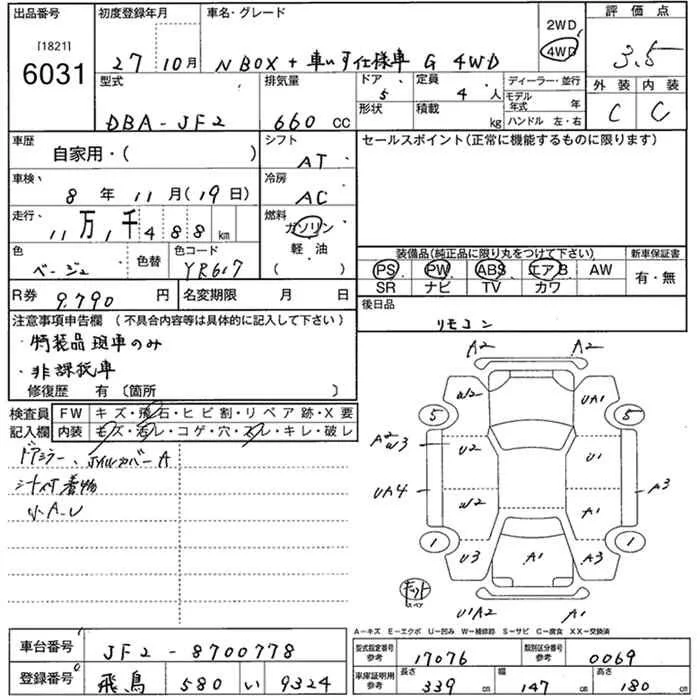 出品番号
[1821]
6031
初度登録年月
27年10月
車名・グレード
N BOX + 車いす仕様車 G 4WD
2WD
4WD
評価点
3.5
型式
DBA-JF2
排気量
660 CC
ドア 5
定員 4人
形状
積載 kg
ディーラー・並行
モデル年式 年
ハンドル 左・右
外装 内装
C C
車歴
自家用・( )
シフト
AT
セールスポイント(正常に機能するものに限ります)
車検、
8年11月(19日)
冷房
AC
走行、
11万1千488km
燃料
ガソリン
軽・油
( )
色
ベージュ
色替
色コード
YR617
装備品(純正品に限り丸をつけて下さい)
PS PW ABS エアB AW
SR ナビ TV カワ
新車保証書
有・無
R券 9,790円
名変期限 月 日
後日品
リモコン
注意事項申告欄 (不具合内容等は具体的に記入して下さい)
・特装品 現車のみ
・非課税車
修復歴 有 〔箇所 〕
検査員記入欄
FW キズ・飛石・ヒビ割・リペア跡・X要
内装 キズ・汚レ・コゲ・穴・スレ・キレ・破レ
ドアミラー、 カバーA
小A・U
A2 A2
W2 UA1
5 5
A2
W3 U2 U1
UA4 W2 A1 A3
1 1
U3 A1 A3
キット
スペア
U1A2 A1
A-キズ E-エクボ U-凹み W-補修跡 S-サビ C-腐食 XX-交換済
車台番号 JF2-8700778
型式指定番号 参考 17076
類別区分番号 参考 0069
登録番号 飛鳥 580 い 9324
車庫証明用 参考
長さ 339 cm
幅 147 cm
高さ 180 cm